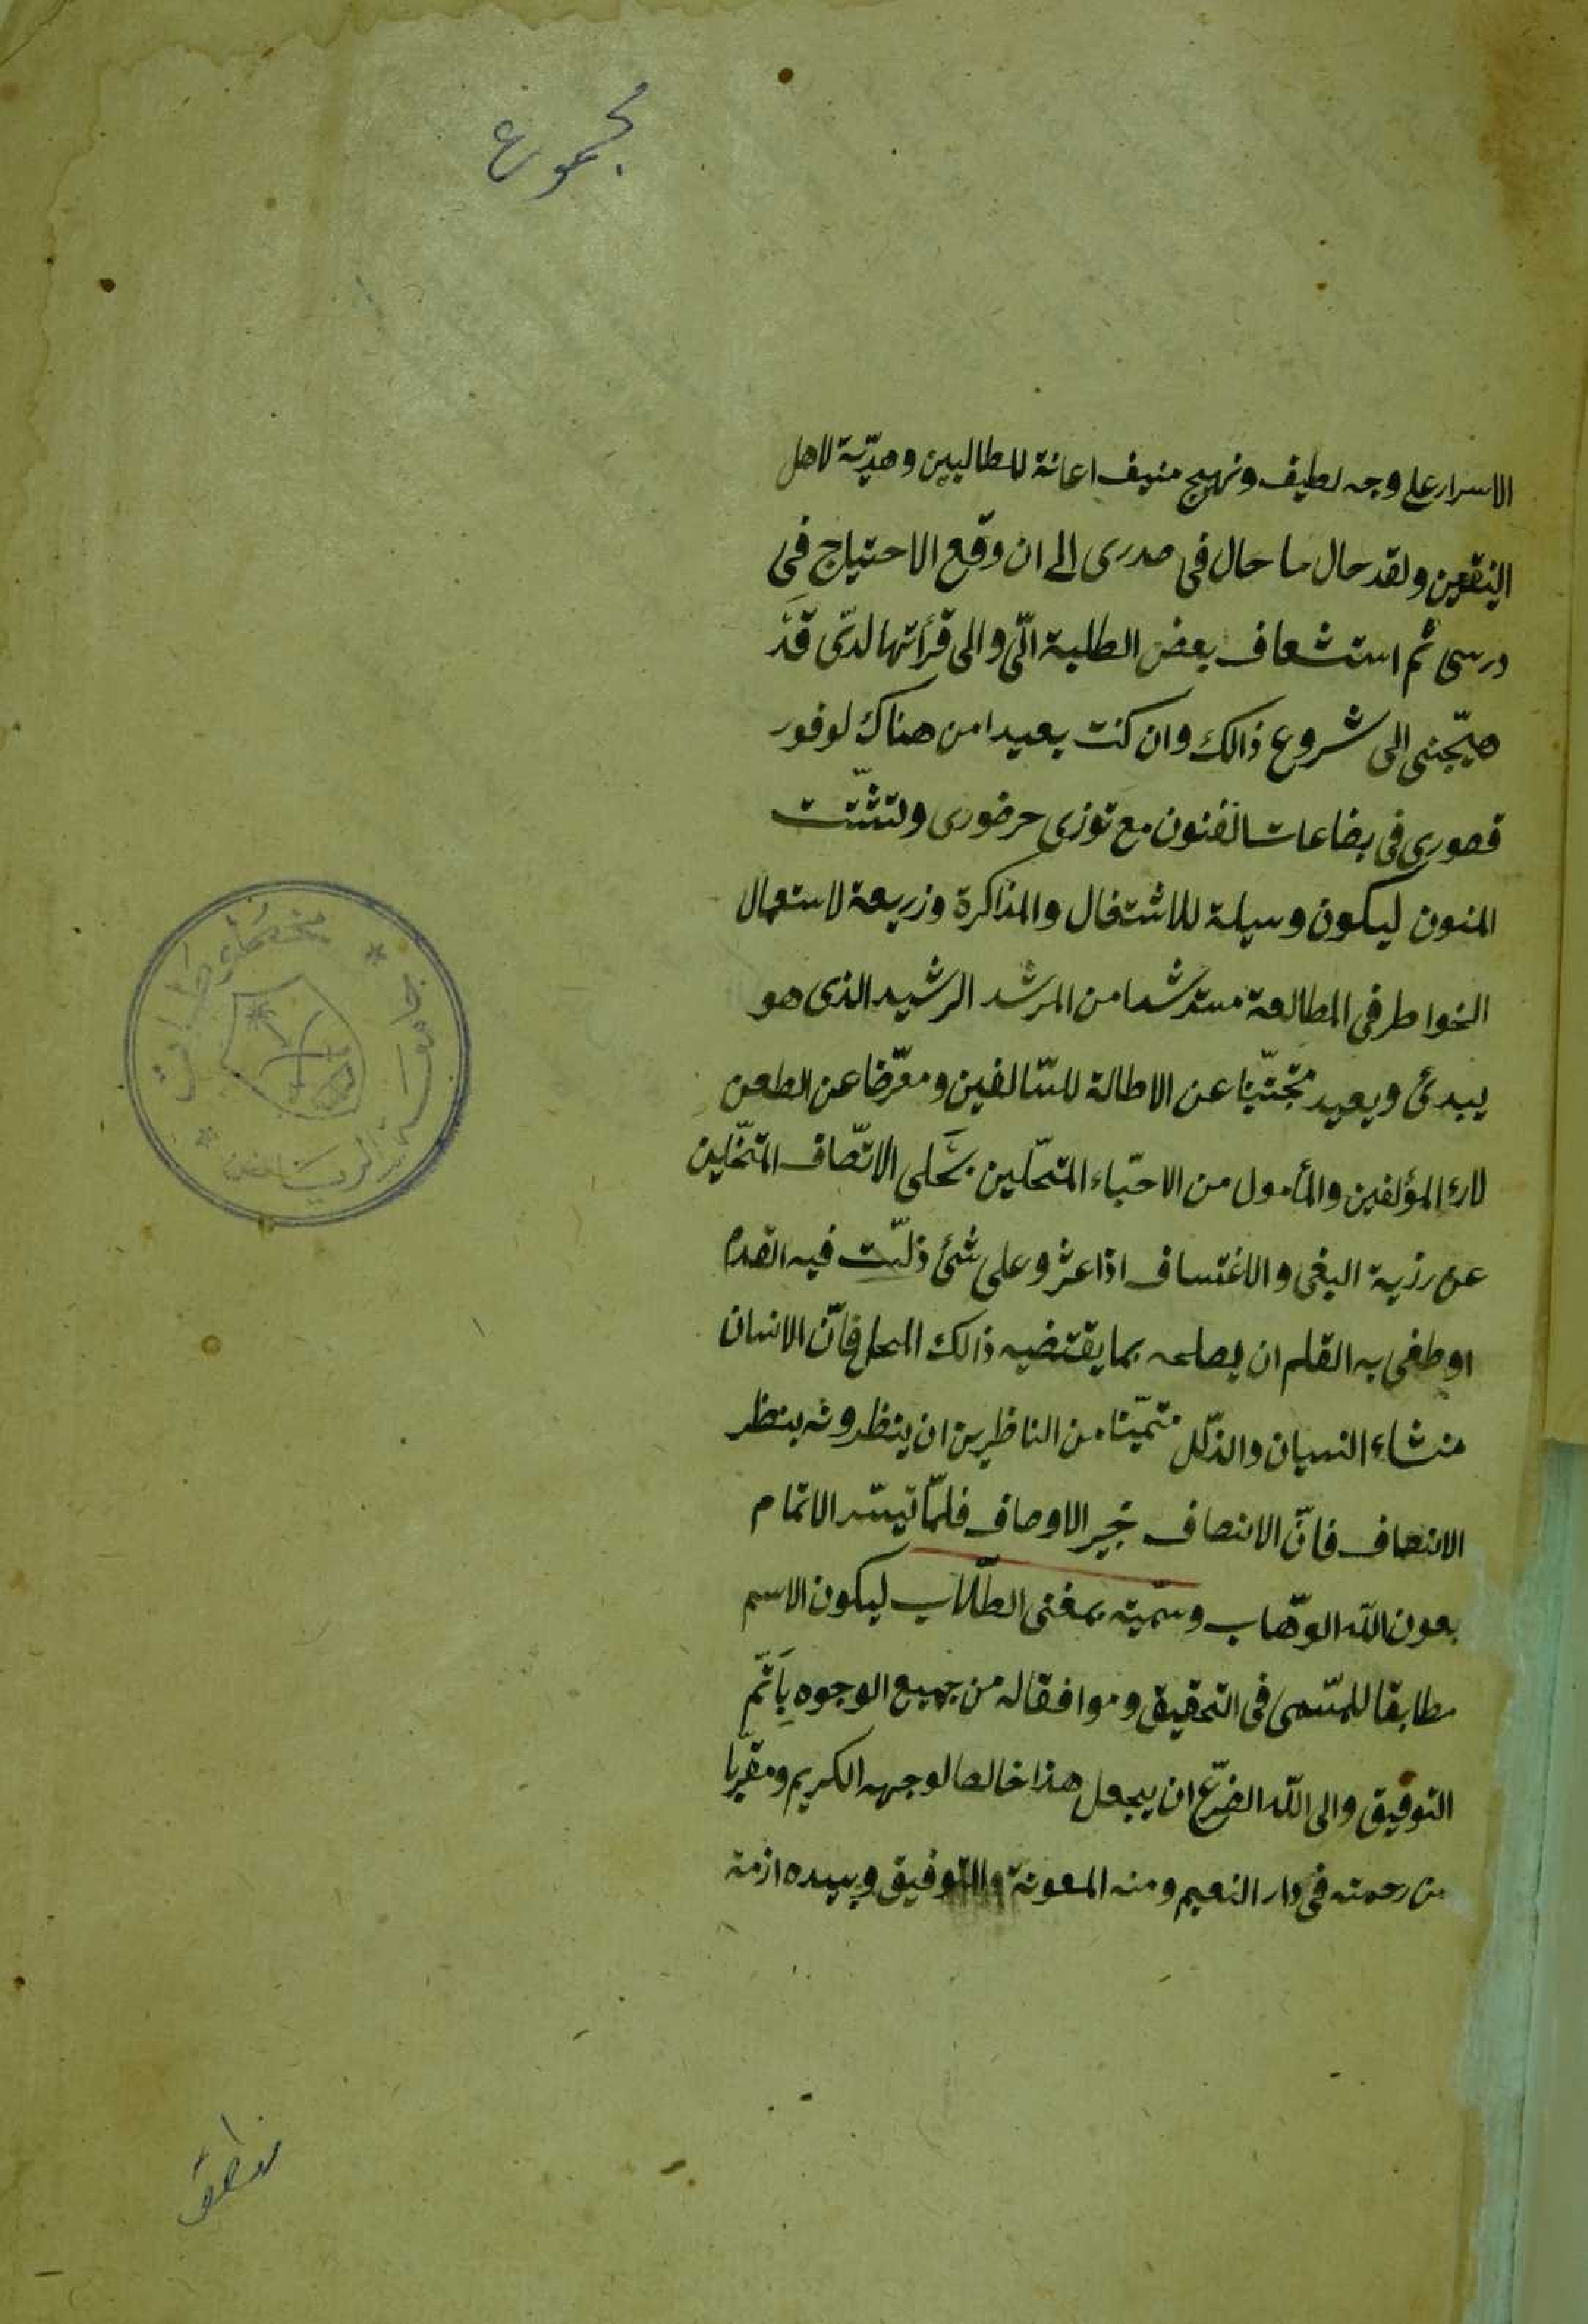 مجموع
الاسرار على وجه لطيف ونهج منيف اعانة للطالبين وهديّة لاهل
اليقين ولقد حال ما حال فى صدرى الى ان وقع الاحتياج فى
درسى ثم استشعاف بعض الطلبة الىّ والى قرأتها لدىّ قد
هيّجنى الى شروع ذالك وان كنت بعيدا من هناك لوفور
قصورى فى بضاعات الفنون مع توزى حرضورى ولتشتّت
المنون ليكون وسيلة للاشتغال والمذاكرة وزريعة لاستعمال
الخواطر فى المطالعة مسترشدا من المرشد الرشيد الذى هو
يبدئ ويعيد مجتنّبا عن الاطالة للسّالفين ومعرّضا عن الطعن
لارء المؤلفين والمأمول من الاحبّاء المتحلّين بحَلى الاتّصاف المتخّلين
عن رزية البغى والاغتساف اذا عثروا على شئ ذلّت فيه القدم
او طغى به القلم ان يصلحه بما يقتضيه ذالك المحل فانّ الانسان
منشاء النسيان والذلّل متمنّيا من الناظرين ان ينظروه بنظر
الانصاف فانّ الانصاف خير الاوصاف فلمّا تيسّر الاتمام
بعون الله الوهّاب وسمّيته بمغنى الطلّاب ليكون الاسم
مطابقا للمسّمى فى التحقيق وموافقا له من جميع الوجوه بِاَتمّ
التوفيق والى الله الضرّع ان يجعل هذا خالصا لوجهه الكريم ومقرّبا
من رحمته فى دار النعيم ومنه المعونة والتوفيق وبيده ازمة
جامعة الرياض
مخطوطات